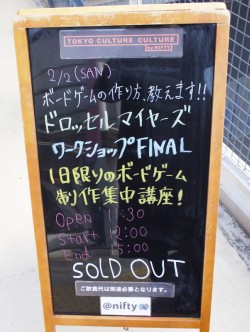 TOKYO CULTURE CULTURE
by NIFTY
2/2(SAN)
ボードゲームの作り方、教えます!!
ドロッセルマイヤーズ
ワークショップFINAL
1日限りのボードゲーム
制作集中講座!
Open 11:30
Start 12:00
End 15:00
SOLD OUT
ご飲食代は別途必要となります。
@nifty